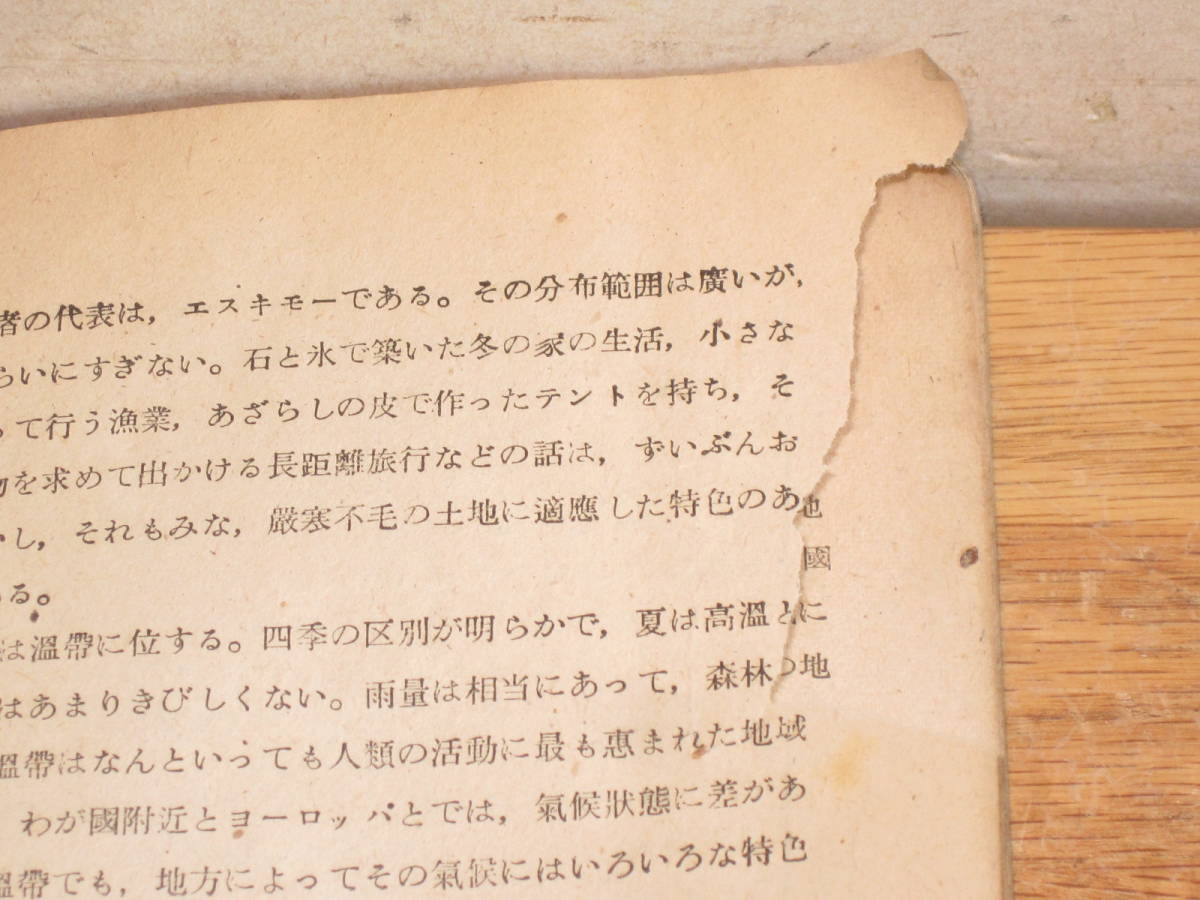 者の代表は，エスキモーである。その分布範囲は廣いが，
らいにすぎない。石と氷で築いた冬の家の生活，小さな
って行う漁業，あざらしの皮で作ったテントを持ち，そ
物を求めて出かける長距離旅行などの話は，ずいぶんお
かし，それもみな，嚴寒不毛の土地に適應した特色のあ
ある。
は溫帶に位する。四季の区別が明らかで，夏は高溫と
はあまりきびしくない。雨量は相当にあって，森林
溫帶はなんといっても人類の活動に最も惠まれた地域
わが國附近とヨーロッパとでは，氣候狀態に差があ
溫帶でも，地方によってその氣候にはいろいろな特色
也
國
に
地